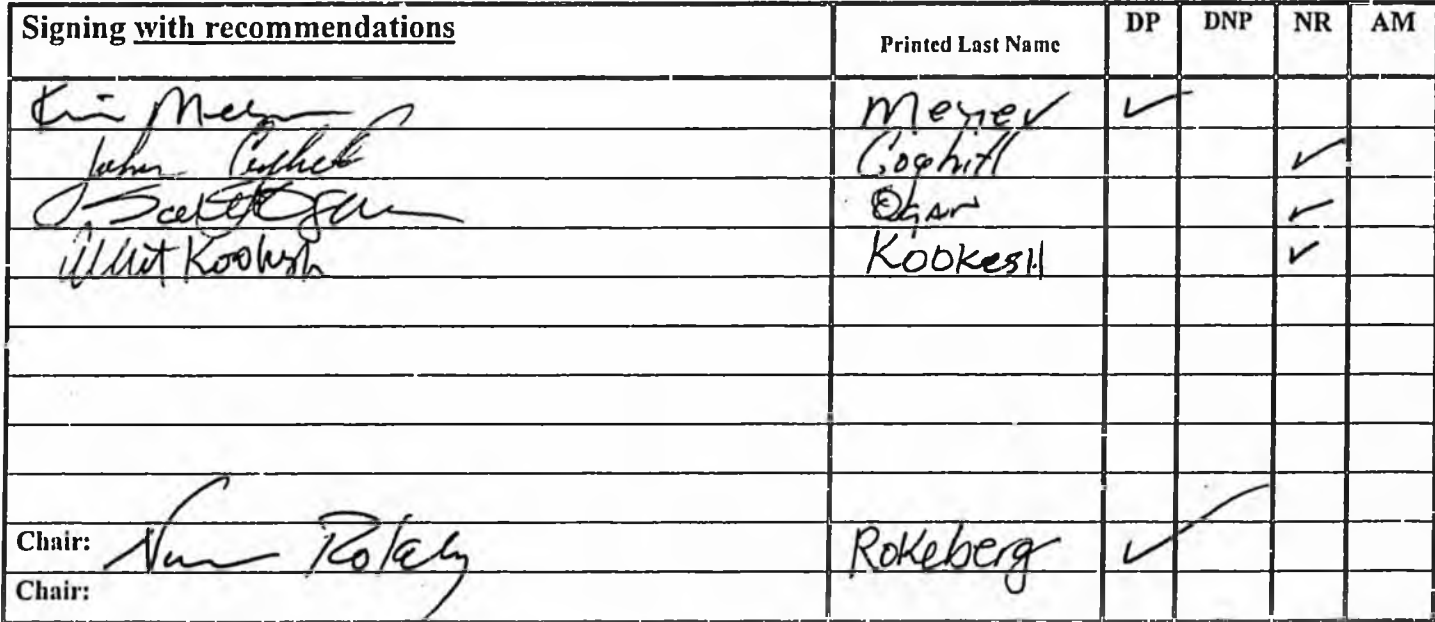 Signing with recommendations Printed Last Name DP DNP NR AM
Meyer ✓
John Coghill Coghill ✓
Scott Ogan Ogan ✓
Kookesh Kookesh ✓
Chair: Rokeberg ✓
Chair: